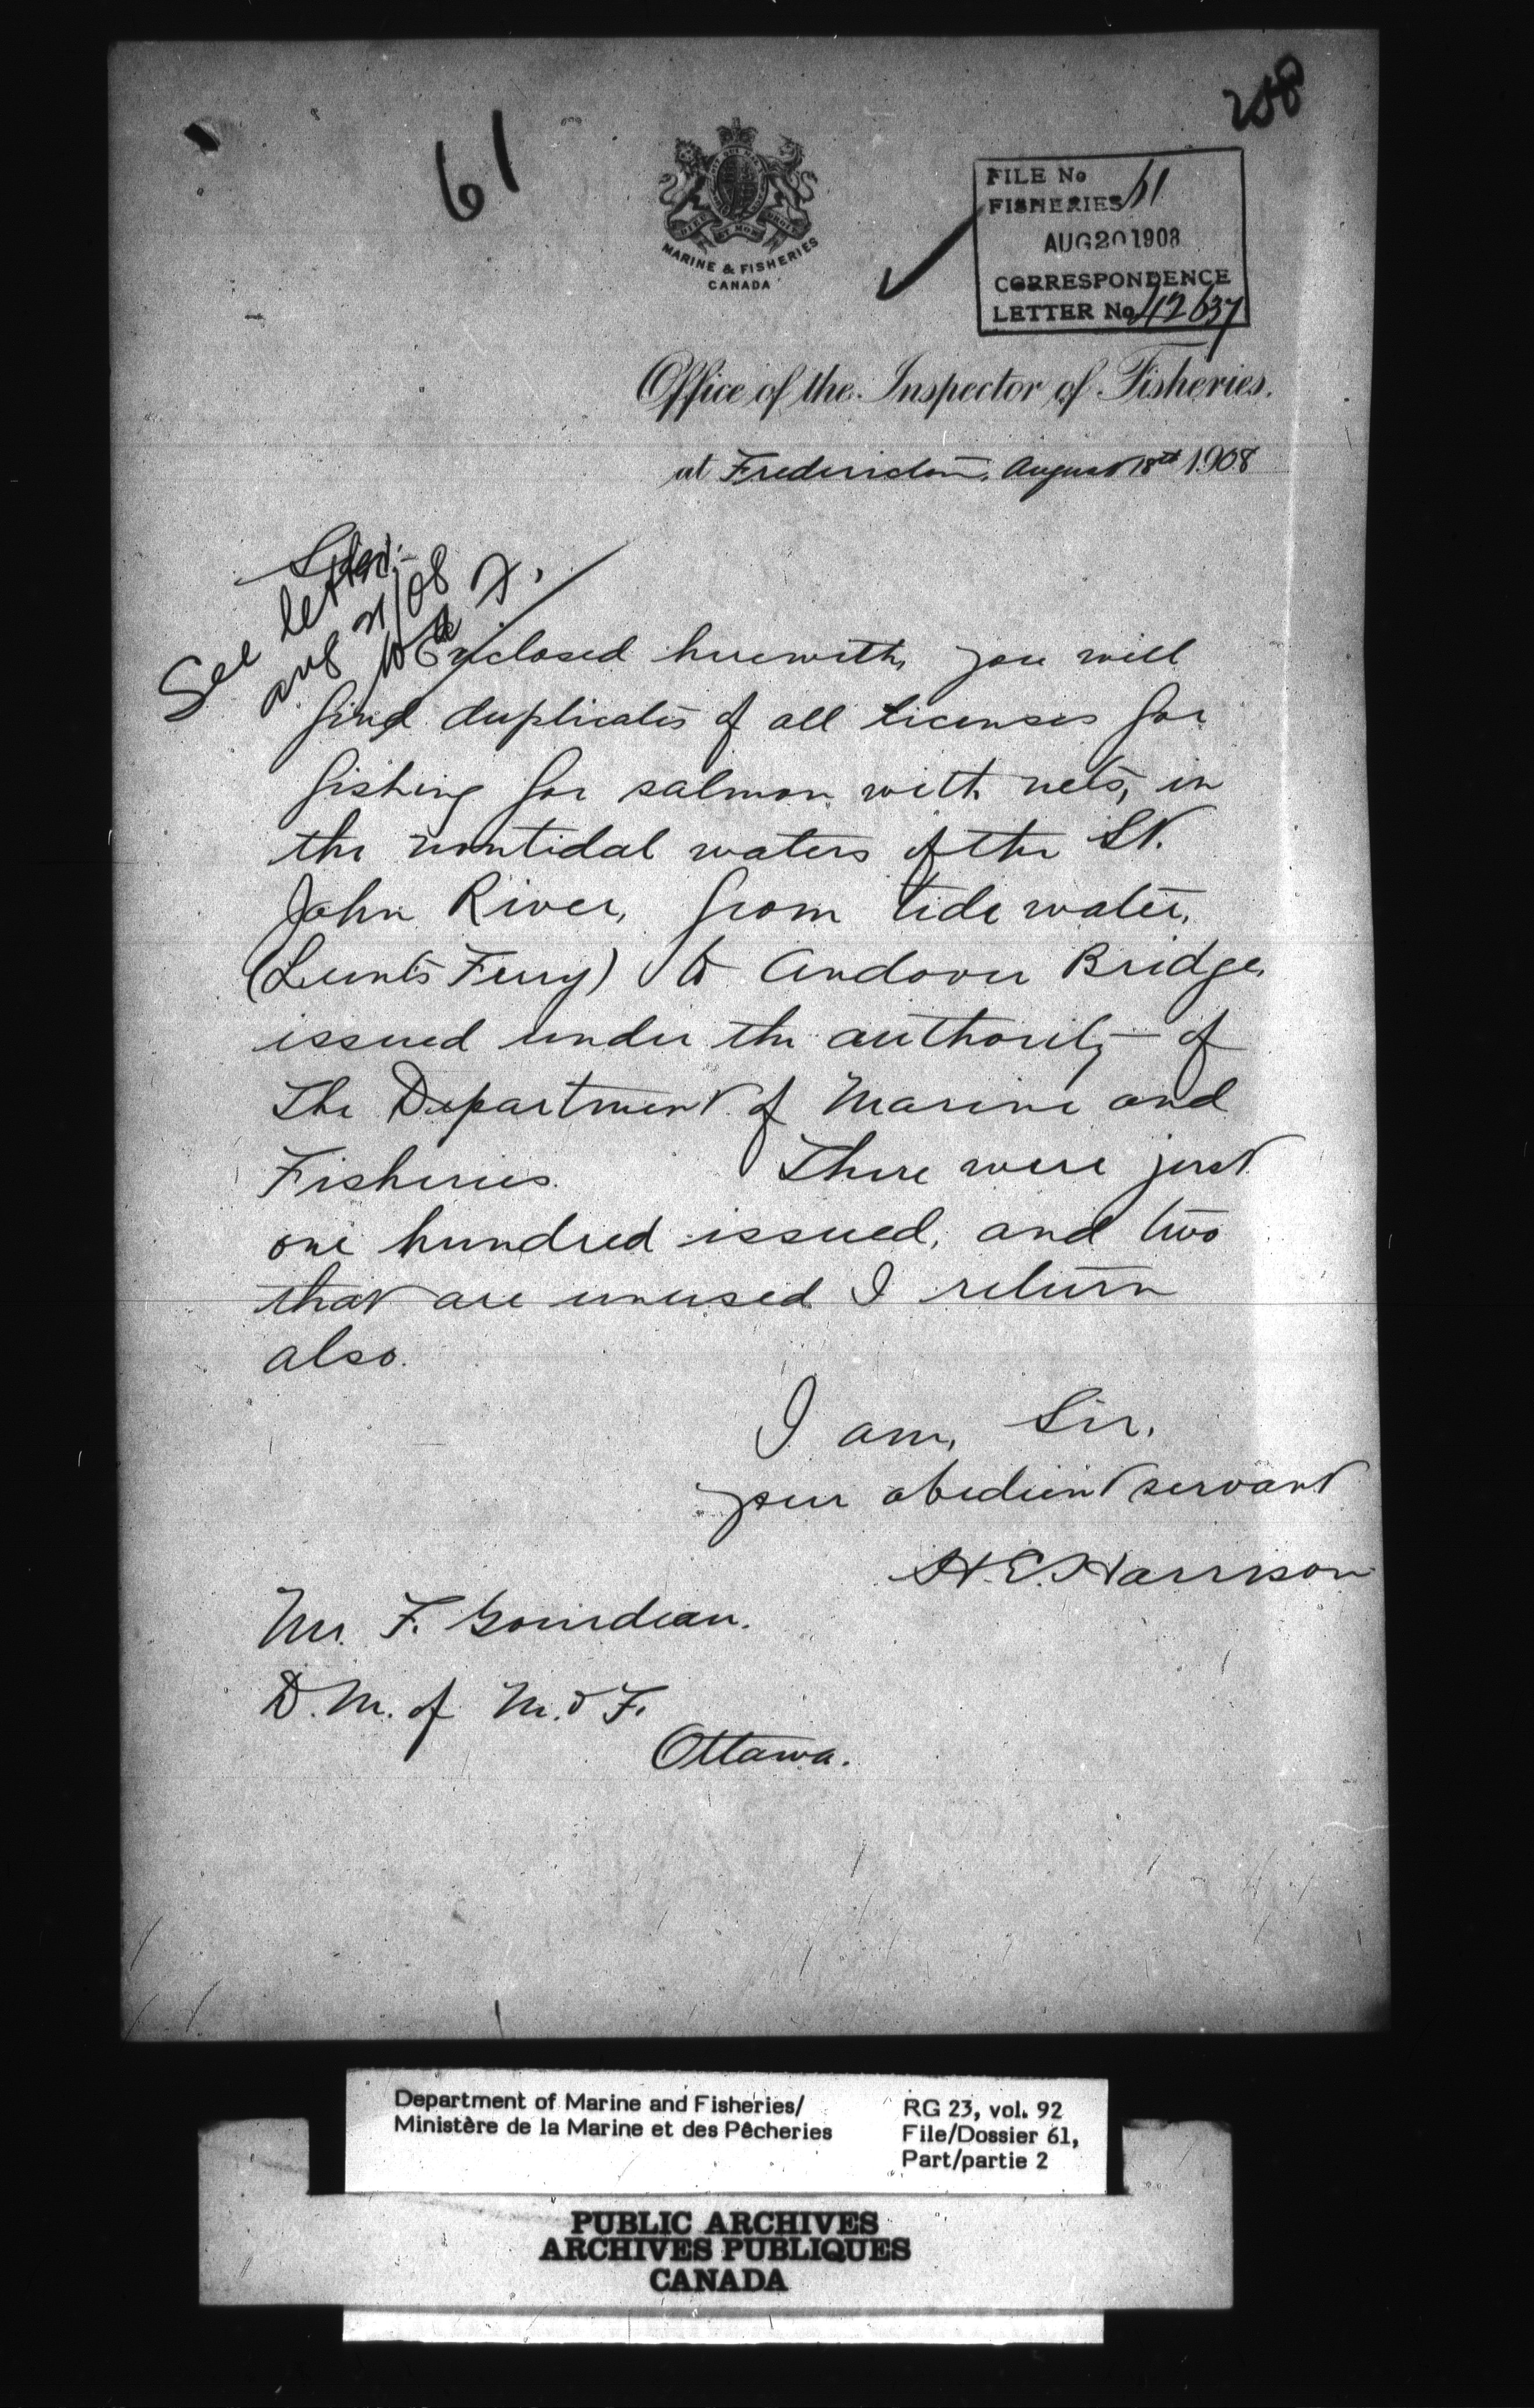 61
208
MARINE & FISHERIES
CANADA
FILE No
FISHERIES 61
AUG 20 1908
CORRESPONDENCE
LETTER No 42637
Office of the Inspector of Fisheries.
at Fredericton, August 18th 1908
Sir:-
See letter
aug 21/08
Enclosed herewith, you will
find duplicates of all licenses for
fishing for salmon with nets, in
the nontidal waters of the St.
John River, from tide water,
(Lunt's Ferry) to Andover Bridge,
issued under the authority of
The Department of Marine and
Fisheries. There were just
one hundred issued, and two
that are unused I return
also.
I am, Sir,
your obedient servant
H.E. Harrison
Mr. F. Gourdeau.
D.M. of M. & F.
Ottawa.
Department of Marine and Fisheries/
Ministère de la Marine et des Pêcheries
RG 23, vol. 92
File/Dossier 61,
Part/partie 2
PUBLIC ARCHIVES
ARCHIVES PUBLIQUES
CANADA